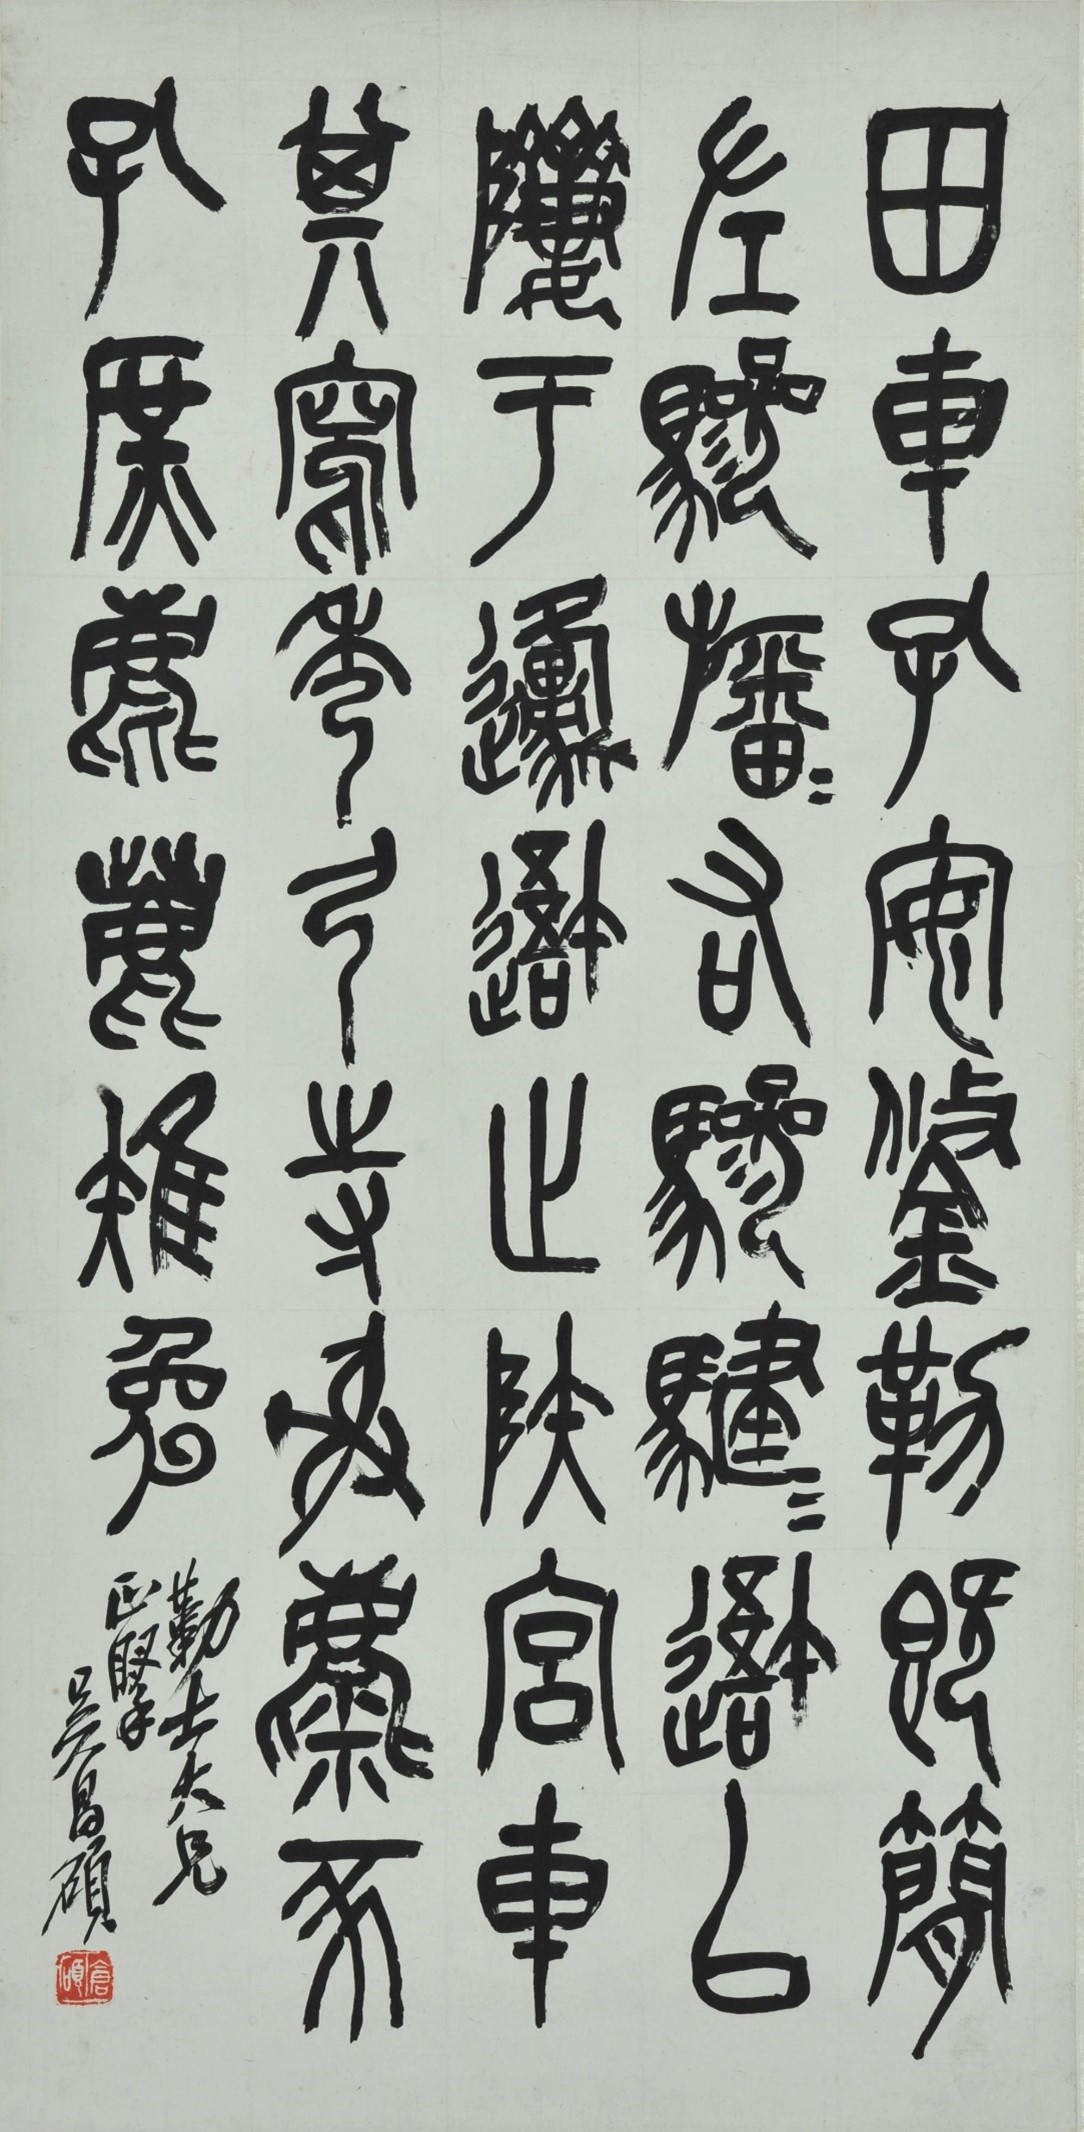 田車孔安鋚勒既簡
左驂旛〻右驂騝〻䢩以
隮于邍䢩止陕宮車
其寫秀弓寺射麋豕
孔庶麀鹿雉兔
勤士大兄
正掔
吳昌碩
倉碩